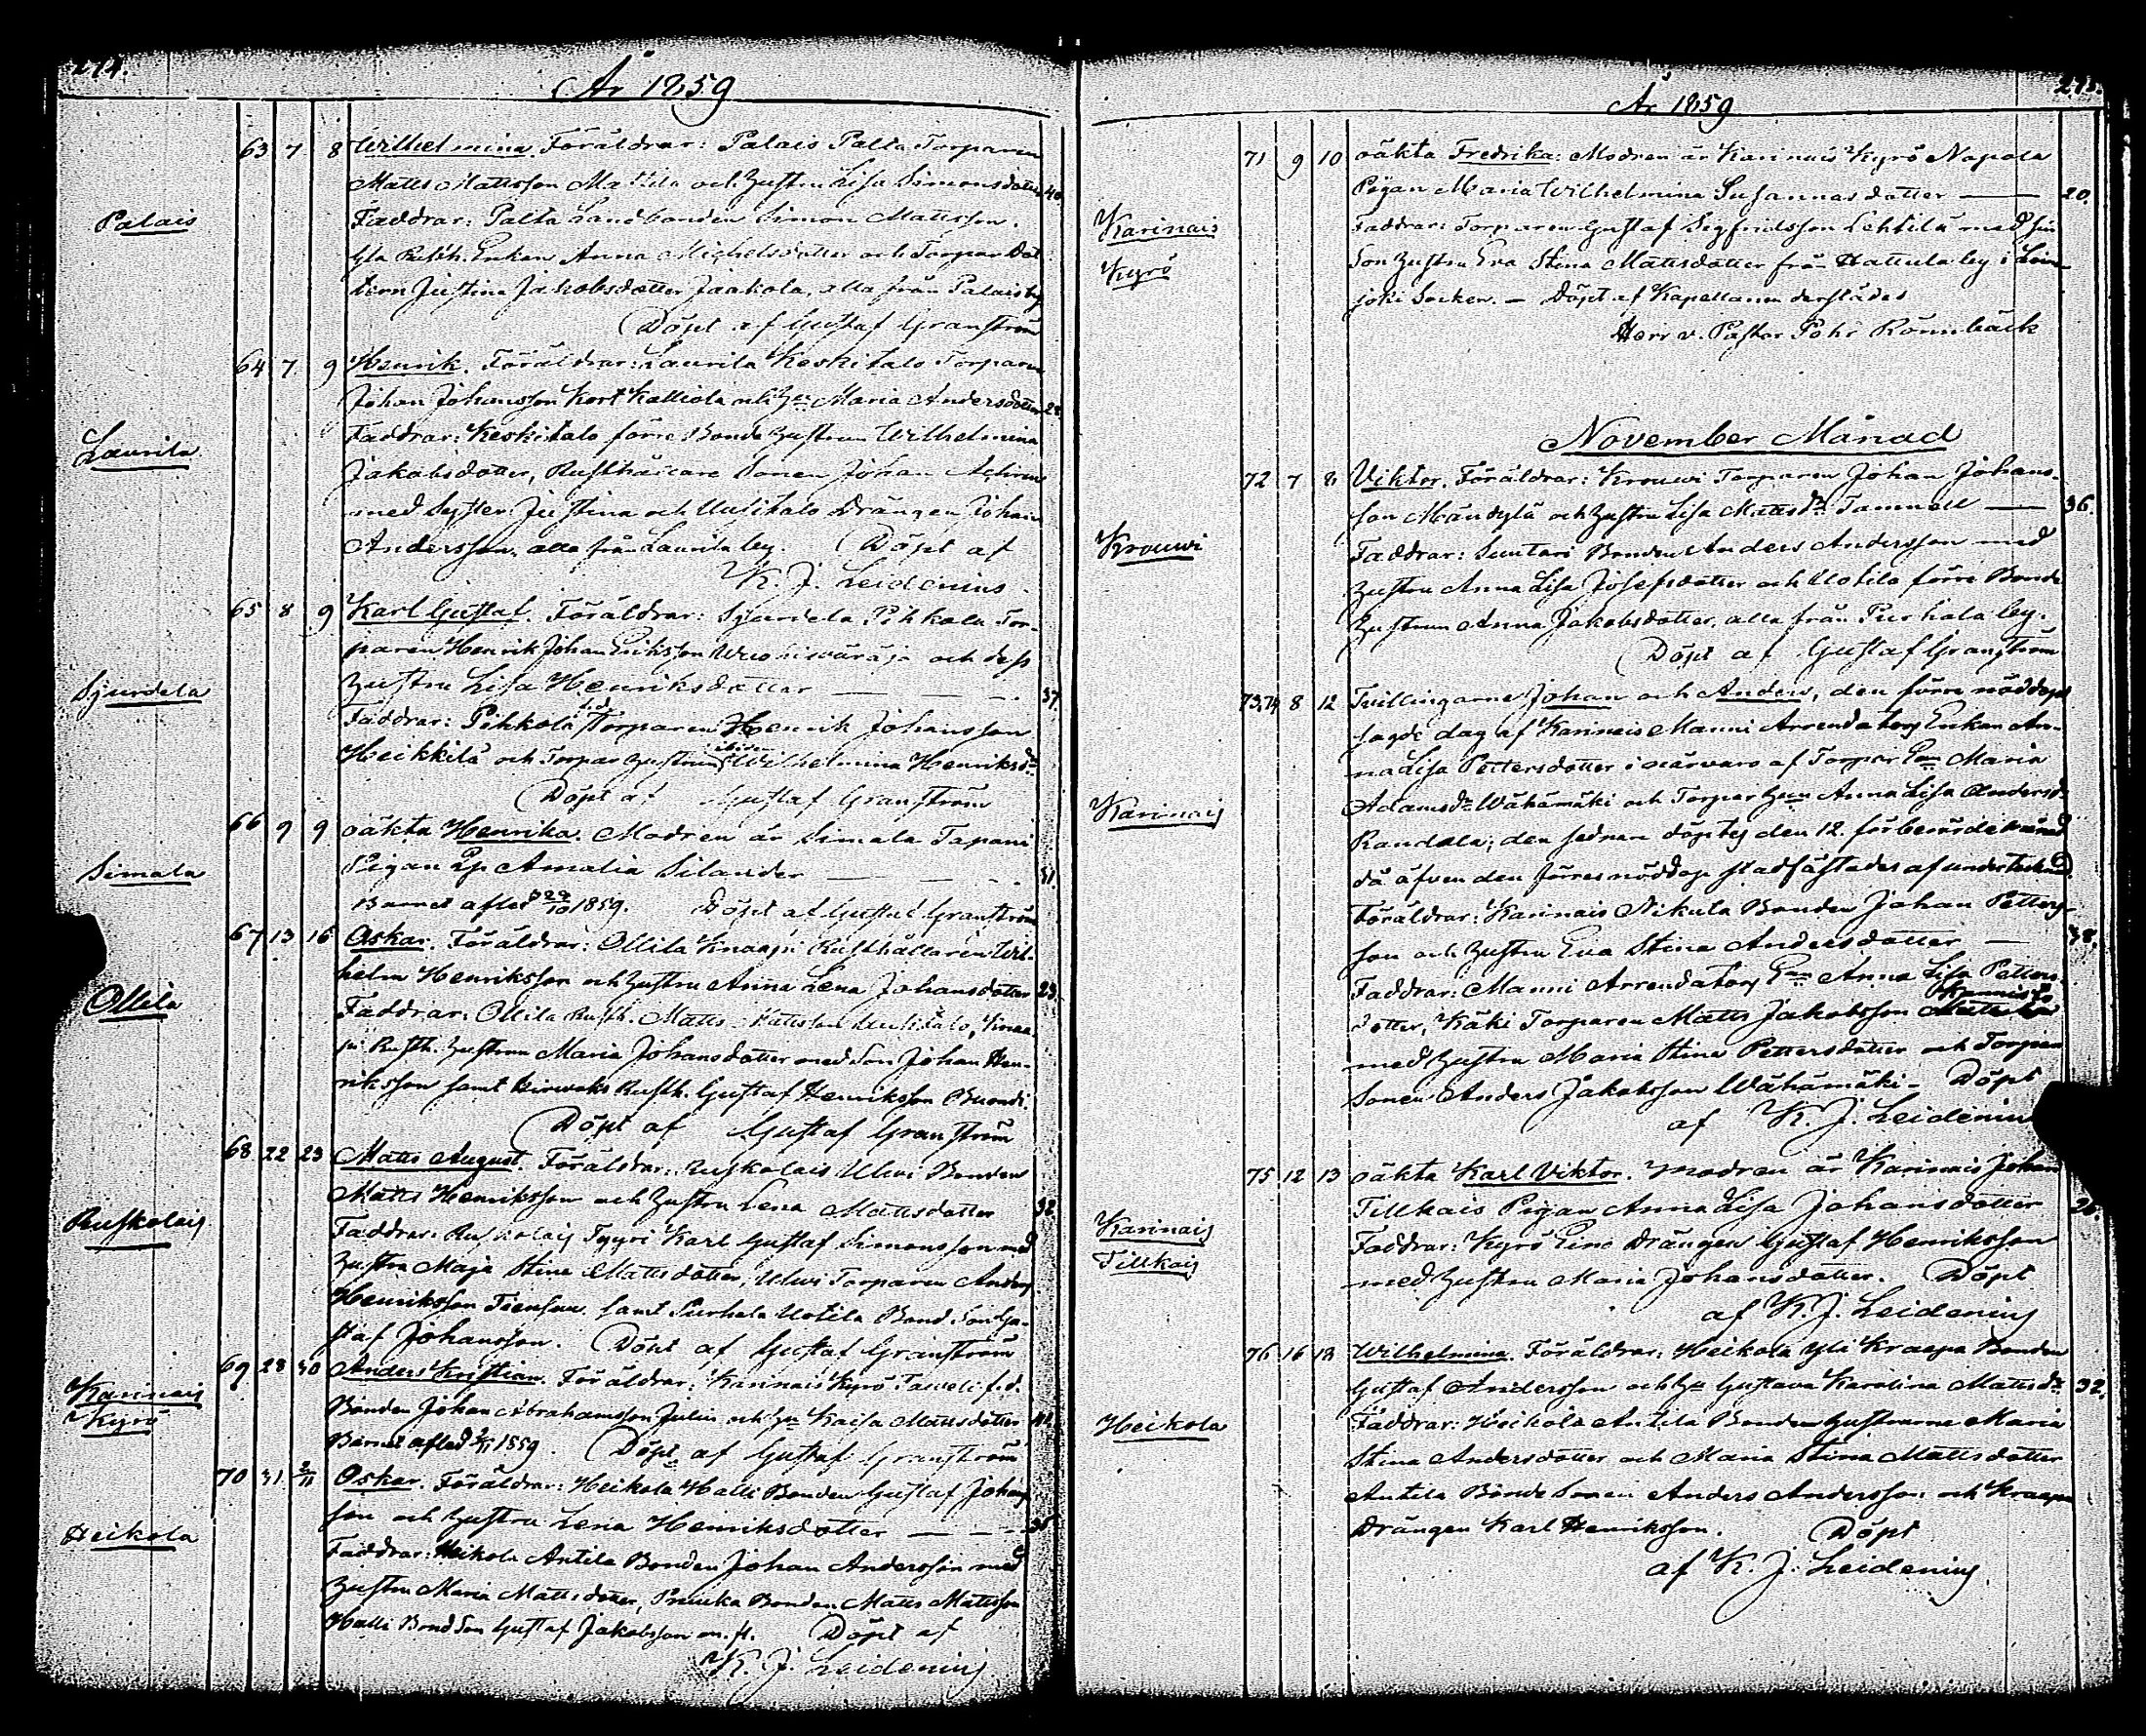 274.
År 1859
63 7 8 Wilhelmina. Föräldrar: Palais Palta Torparen
Matts Mattsson Mattila och hustru Lisa Simonsdotter 40
Palais
Faddrar: Palta Landbonden Simon Mattsson.
Rusth. Enkan Anna Michelsdotter och Torpar Dot
tern Justina Jakobsdotter Jaakola, alla från Palais by
Döpt af Gustaf Granström
64 7 9 Henrik. Föräldrar: Laurila Keskitalo Torparen
Johan Johansson Kort Kalliola och Hu Maria Andersdotter 28
Laurila
Faddrar: Keskitalo förre Bonde hustrun Wilhelmina
Jakobsdotter, Rusthållare Sonen Johan
med Syster Justina och Uusitalo Drängen Johan
Andersson, alla från Laurila by. Döpt af
K. J. Leidenius
65 8 9 Karl Gustaf. Föräldrar: Sjurdela Pihkala Tor-
paren Henrik Johan Eriksson och dess
Sjurdela
hustru Lisa Henriksdotter — — — 37.
Faddrar: Pihkola Torparen Henrik Johansson
Heikkilä och Torpar hustrun Wilhelmina Henriksdr
Döpt af Gustaf Granström
66 9 9 oäkta Henrika. Modren är Simala Tapani
Simala
Pigan Amalia Silander — — — 31.
Barnet afled 29/10 1859. Döpt af Gustaf Granström
67 13 16 Oskar. Föräldrar: Ollila Knaapi Rusthållaren Wil-
helm Henriksson och hustru Anna Lena Johansdotter 23.
Ollila
Faddrar: Ollila Rusth. Matts Mattsson Uusitalo, Knaa-
pi Rusth. hustrun Maria Johansdotter med Son Johan Hen-
riksson samt Rusth. Gustaf Henriksson
Döpt af Gustaf Granström
68 22 23 Matts August. Föräldrar: Ruskolais Ulwi Bonden
Matts Henriksson och hustru Lena Mattsdotter 32
Ruskolais
Faddrar: Ruskolais Tyyri Karl Gustaf Simonsson med
hustru Maja Stina Mattsdotter, Ulwi Torparen Anders
Henriksson Tiensuu samt Purhala Uotila Bond. Son Gu-
staf Johansson. Döpt af Gustaf Granström
69 28 30 Anders Kristian. Föräldrar: Karinais Kyrö Taweli f.d.
Karinais
Kyrö
Bonden Johan Abrahamsson Julin och Hu Kaisa Mattsdotter 44.
Barnet afled 2/11 1859. Döpt af Gustaf Granström
70 31. 2/11 Oskar. Föräldrar: Heikola Halli Bonden Gustaf Johans-
son och hustru Lena Henriksdotter — — —
Heikola
Faddrar: Heikola Antila Bonden Johan Andersson med
hustru Maria Mattsdotter, Bonden Matts Mattsson
Halli Bond Son Gustaf Jakobsson m. fl. Döpt af
K. J. Leidenius
275.
År 1859
71 9 10 oäkta Fredrika: Modren är Karinais Kyrö Napola
Pigan Maria Wilhelmina Susannas dotter — 20.
Karinais
Kyrö
Faddrar: Torparen Gustaf Segfridsson Lehtilä med sin
Son hustru Eva Stina Mattsdotter från Hattula by i Loi-
joki Socken. — Döpt af Kapellanen derstädes
Herr v. Pastor Pehr Rönnbäck
November Månad
72 7 8 Viktor. Föräldrar: Krouwi Torparen Johan Johans-
son Mändylä och hustru Lisa Mattsdr Tammell — 36.
Krouwi
Faddrar: Suutari Bonden Anders Andersson med
hustru Anna Lisa Josefsdotter och Uotila förre Bonde
hustrun Anna Jakobsdotter, alla från Purhala by.
Döpt af Gustaf Granström
73,74 8 12 Tvillingarne Johan och Anders, den förre nöddöpt
sagde dag af Karinais Manni Arrendators Enkan An-
na Lisa Pettersdotter i närvaro af Torpar Maria
Karinais
Adamsdr Wähämäki och Torpar Hun Anna Lisa Andersdr
Randala; den sednare döptes den 12. förberörde månad
då äfven den förres nöddop stadfästades af undertecknad
Föräldrar: Karinais Nikula Bonden Johan Petters-
son och hustru Eva Stina Andersdotter — 38.
Faddrar: Manni Arrendators Anna Lisa Petters-
dotter, Käki Torparen Matts Jakobsson Kannisto
med hustru Maria Stina Pettersdotter och Torpar
Sonen Anders Jakobsson Wähämäki — Döpt
af K. J. Leidenius
75 12 13 oäkta Karl Viktor. Modren är Karinais Johan
Tillkais Pigan Anna Lisa Johansdotter
Karinais
Tillkais
Faddrar: Kyrö Eino Drängen Gustaf Henriksson
med hustru Maria Johansdotter. Döpt
af K. J. Leidenius
76 16 18 Wilhelmina. Föräldrar: Heikola Yli Kraapa Bonden
Gustaf Andersson och Hu Gustava Karolina Mattsdr 32.
Heikola
Faddrar: Heikola Antila Bonden hustrurne Maria
Stina Andersdotter och Maria Stina Mattsdotter
Antila Bonde Sonen Anders Andersson och Kraapa
Drängen Karl Henriksson. Döpt
af K. J. Leidenius